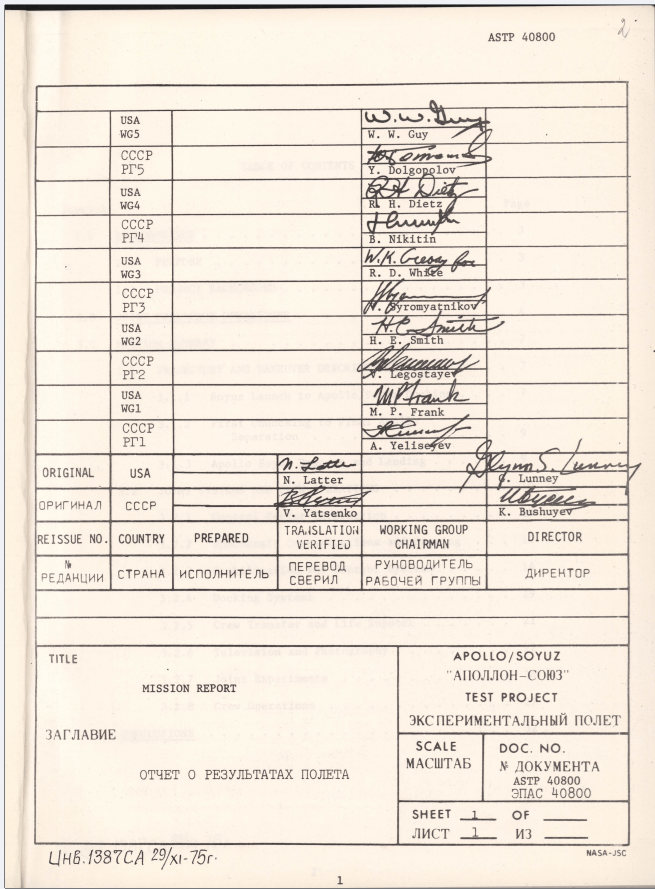 ASTP 40800
2
USA
WG5
W. W. Guy
W. W. Guy
СССР
РГ5
Y. Dolgopolov
USA
WG4
R H Dietz
R. H. Dietz
СССР
РГ4
B. Nikitin
USA
WG3
W.K. Creasy for
R. D. White
СССР
РГ3
V. Syromyatnikov
USA
WG2
H. E. Smith
H. E. Smith
СССР
РГ2
V. Legostayev
USA
WG1
M P Frank
M. P. Frank
СССР
РГ1
A. Yeliseyev
ORIGINAL USA
N. Latter
N. Latter
Glynn S. Lunney
G. Lunney
ОРИГИНАЛ СССР
V. Yatsenko
K. Bushuyev
REISSUE NO. COUNTRY PREPARED TRANSLATION VERIFIED WORKING GROUP CHAIRMAN DIRECTOR
№ РЕДАКЦИИ СТРАНА ИСПОЛНИТЕЛЬ ПЕРЕВОД СВЕРИЛ РУКОВОДИТЕЛЬ РАБОЧЕЙ ГРУППЫ ДИРЕКТОР
TITLE
MISSION REPORT
ЗАГЛАВИЕ
ОТЧЕТ О РЕЗУЛЬТАТАХ ПОЛЕТА
APOLLO/SOYUZ
"АПОЛЛОН-СОЮЗ"
TEST PROJECT
ЭКСПЕРИМЕНТАЛЬНЫЙ ПОЛЕТ
SCALE
МАСШТАБ
DOC. NO.
№ ДОКУМЕНТА
ASTP 40800
ЭПАС 40800
SHEET 1 OF
ЛИСТ 1 ИЗ
NASA-JSC
Инв.1387СА 29/XI-75г.
1